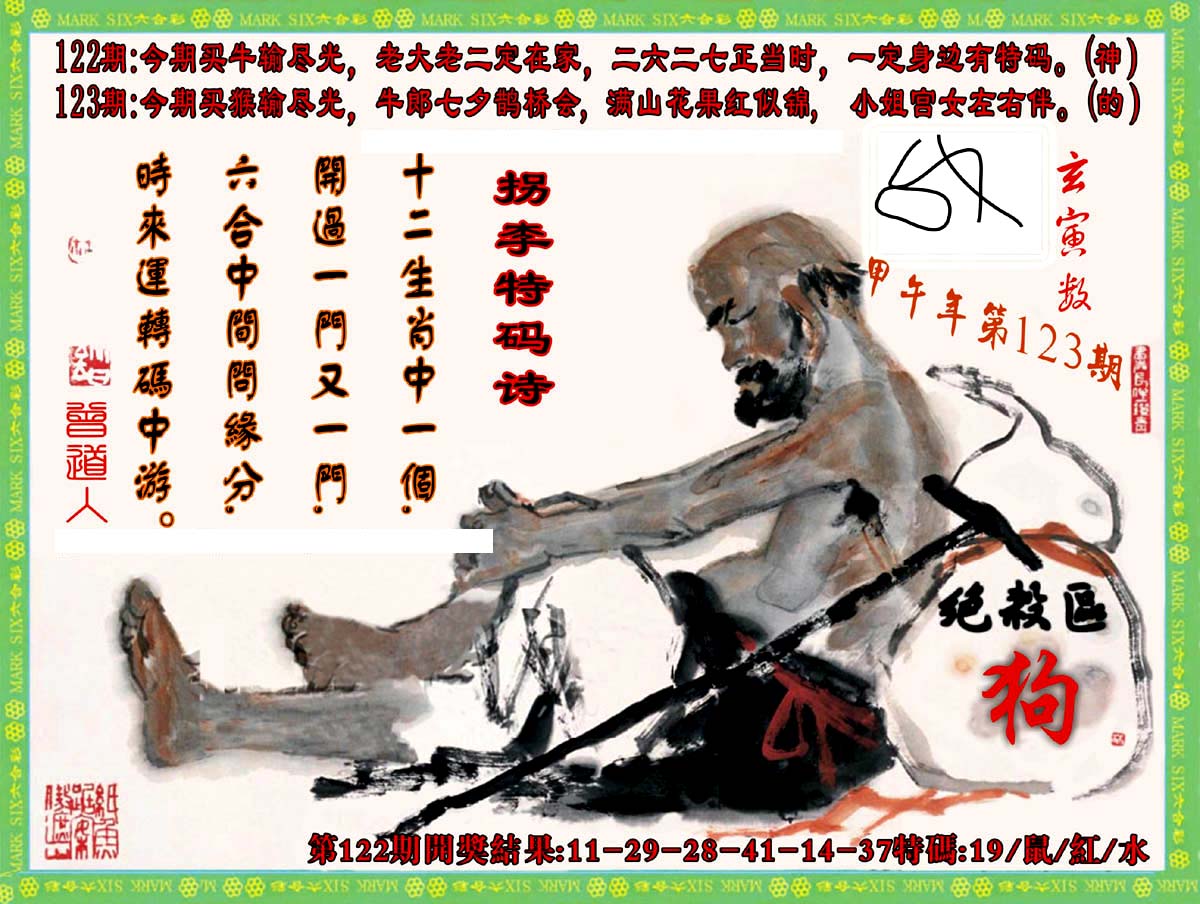 MARK SIX六合彩 MARK SIX六合彩 MARK SIX六合彩 MARK SIX六合彩 MARK SIX六合彩 MARK SIX六合彩
122期:今期买牛输尽光，老大老二定在家，二六二七正当时，一定身边有特码。(神)
123期:今期买猴输尽光，牛郎七夕鹊桥会，满山花果红似锦，小姐宫女左右伴。(的)
玄寅数
甲午年第123期
拐李特码诗
十二生肖中一個.
開過一門又一門.
六合中間問緣分.
時來運轉碼中游。
曾道人
绝殺區
狗
第122期開獎結果:11-29-28-41-14-37特碼:19/鼠/紅/水